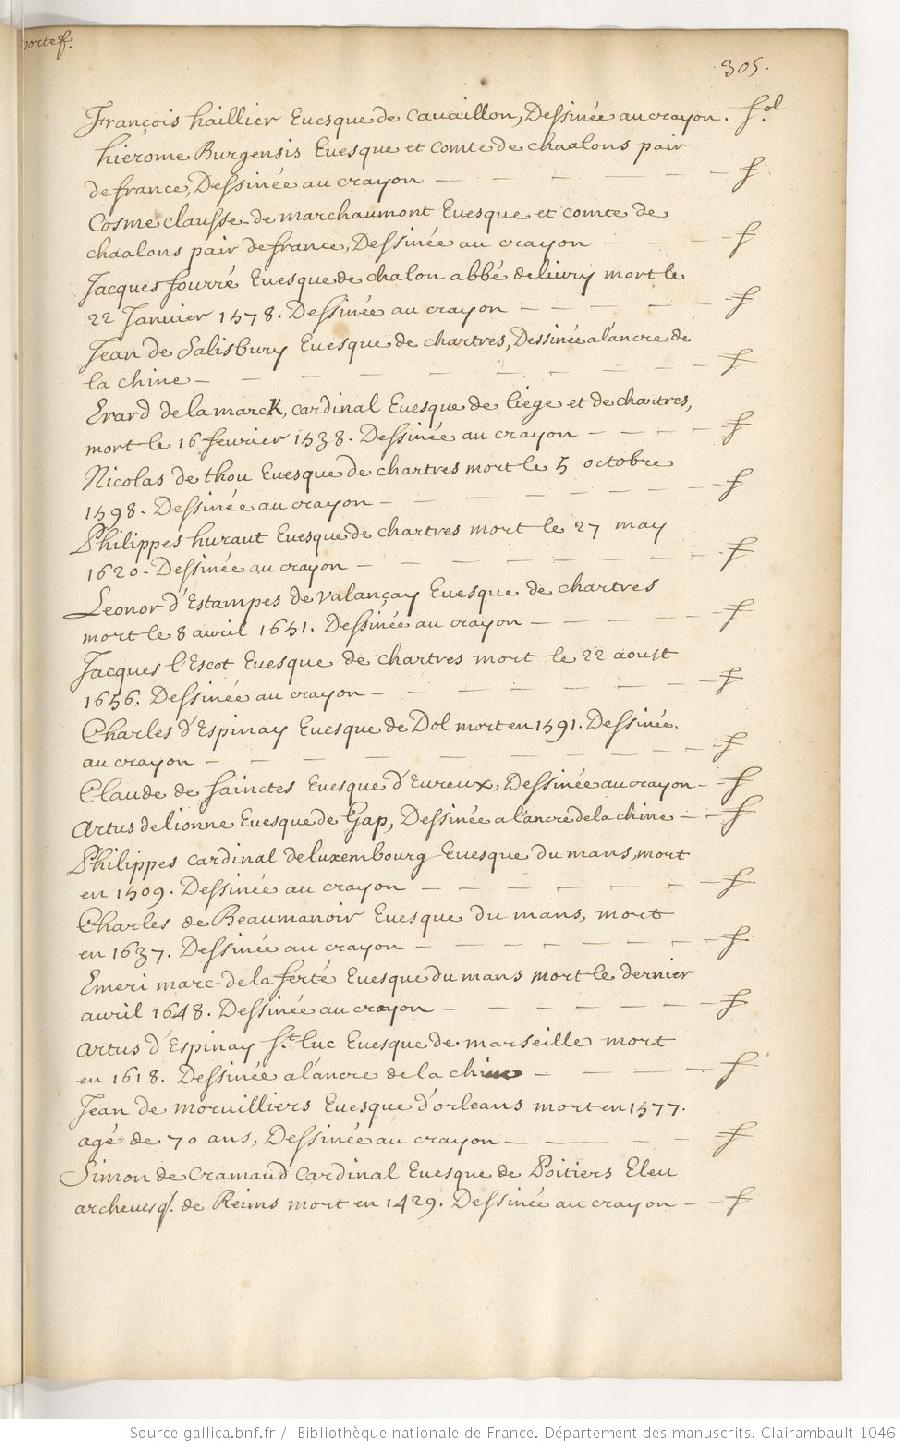 portef.
305.
François haillier Euesque de Cauaillon, Dessinée au crayon. f.ol
hierome Burgensis Euesque et comte de chaalons pair
de france, Dessinée au crayon — — — — — f
Cosme clausse de marchaumont Euesque et comte de
chaalons pair de france, Dessinée au crayon — f
Jacques fourré Euesque de chalon abbé de liury mort le
22 Januier 1578. Dessinée au crayon — — — — f
Jean de Salisbury Euesque de chartres, Dessinée a l'ancre de
la chine — — — — — — — — f
Erard de la marck, cardinal Euesque de liege et de chartres,
mort le 16 feurier 1538. Dessinée au crayon — — — — f
Nicolas de thou Euesque de chartres mort le 5 octobre
1598. Dessinée au crayon — — — — — — f
Philippes huraut Euesque de chartres mort le 27 may
1620. Dessinée au crayon — — — — — — f
Leonor d'Estampes de valançay Euesque de chartres
mort le 8 auril 1651. Dessinée au crayon — — — — f
Jacques l'Escot Euesque de chartres mort le 22 aoust
1656. Dessinée au crayon — — — — — — f
Charles d'Espinay Euesque de Dol mort en 1591. Dessinée
au crayon — — — — — — — — f
Claude de Sainctes Euesque d'Eureux, Dessinée au crayon — f
Artus de lionne Euesque de Gap, Dessinée a l'ancre de la chine — f
Philippes cardinal de luxembourg Euesque du mans, mort
en 1509. Dessinée au crayon — — — — — f
Charles de Beaumanoir Euesque du mans, mort
en 1637. Dessinée au crayon — — — — — f
Emeri marc de la ferté Euesque du mans mort le dernier
auril 1648. Dessinée au crayon — — — — — f
Artus d'Espinay St. luc Euesque de marseille mort
en 1618. Dessinée a l'ancre de la chine — — — — f
Jean de moruilliers Euesque d'orleans mort en 1577.
agé de 70 ans, Dessinée au crayon — — — — f
Simon de Cramaud Cardinal Euesque de Poitiers Eleu
archeuesq. de Reims mort en 1429. Dessinée au crayon — — f
Source gallica.bnf.fr / Bibliothèque nationale de France. Département des manuscrits. Clairambault 1046